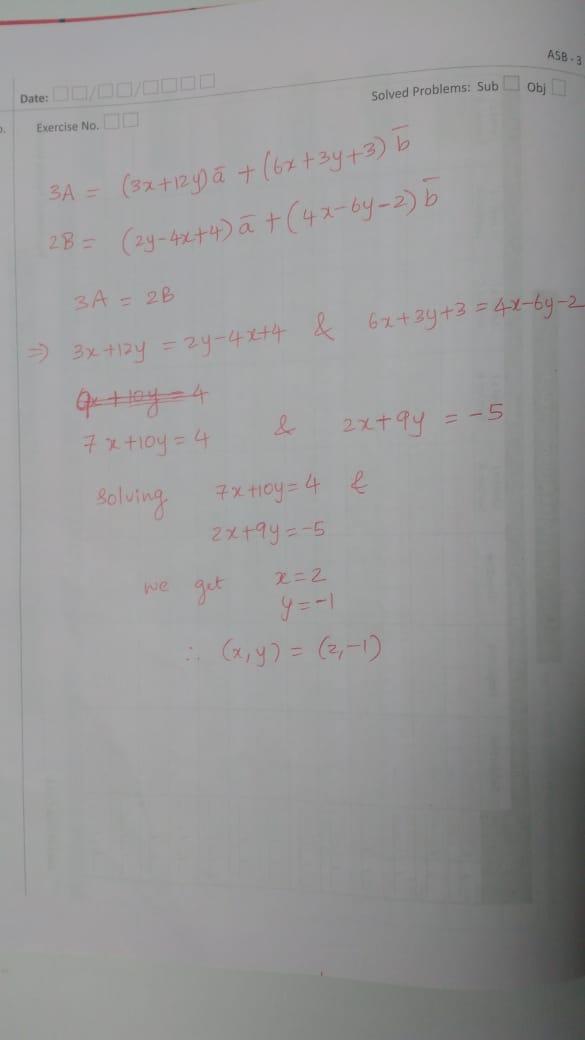 ASB - 3
Date: □□/□□/□□□□ Solved Problems: Sub □ Obj □
Exercise No. □□
3A = (3x+12y) ā + (6x+3y+3) b̄
2B = (2y-4x+4) ā + (4x-6y-2) b̄
3A = 2B
⇒ 3x+12y = 2y-4x+4 & 6x+3y+3 = 4x-6y-2
7x+10y = 4 & 2x+9y = -5
Solving 7x+10y=4 &
2x+9y=-5
we get x=2
y=-1
∴ (x,y) = (2,-1)